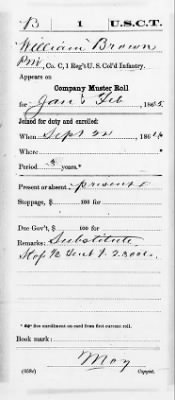 B | 1 | U.S.C.T.
William Brown
Pvt, Co. C, 1 Reg't U. S. Col'd Infantry.
Appears on
Company Muster Roll
for Jan & Feb, 1865.
Joined for duty and enrolled:
When Sept 22, 1864
Where *
Period 3 years.*
Present or absent Present
Stoppage, $ 100 for
Due Gov't, $ 100 for
Remarks: Substitute
Stop
*See enrollment on card from first current roll.
Book mark:
May
(858c) Copyist.